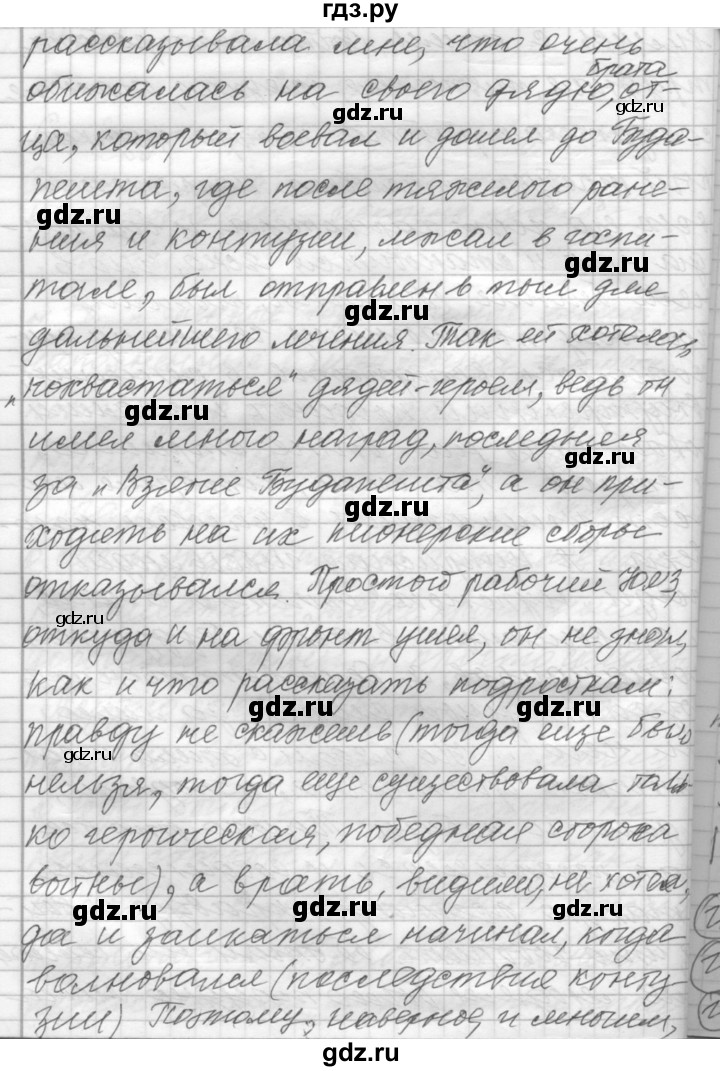 гдз.ру
рассказывала мне, что очень
брата
обижалась на своего дядю, от-
gdz.ru
ца, который воевал и дошел до Буда-
пешта, где после тяжелого ране-
gdz.ru
ния и контузии, лысал в госпи-
gdz.ru
тале, был отправлен в тыл для
gdz.ru
дальнейшего лечения. Так ей хотелось
„похвастаться" дядей-героем, ведь он
gdz.ru
имел много наград, последняя
gdz.ru
за „Взятие Будапешта", а он при-
gdz.ru
ходить на их пионерские сборы
отказывался. Простой рабочий
gdz.ru
откуда и на фронт ушел, он не знал,
как и что рассказать подросткам:
gdz.ru gdz.ru
правду не скажешь (тогда еще было
gdz.ru
нельзя, тогда еще существовала толь-
gdz.ru
ко героическая, победная сторона
войны), а врать, видимо, не хотел,
gdz.ru gdz.ru gdz.ru
да и заикаться начинал, когда
волновался (последствие конту-
gdz.ru
зии) Поэтому, наверное, и многим,
gdz.ru